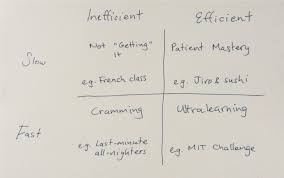 Inefficient Efficient
Slow
Not "Getting"
it
e.g. French class
Patient Mastery
e.g. Jiro & sushi
Fast
Cramming
e.g. Last-minute
all-nighters
Ultralearning
e.g. MIT Challenge